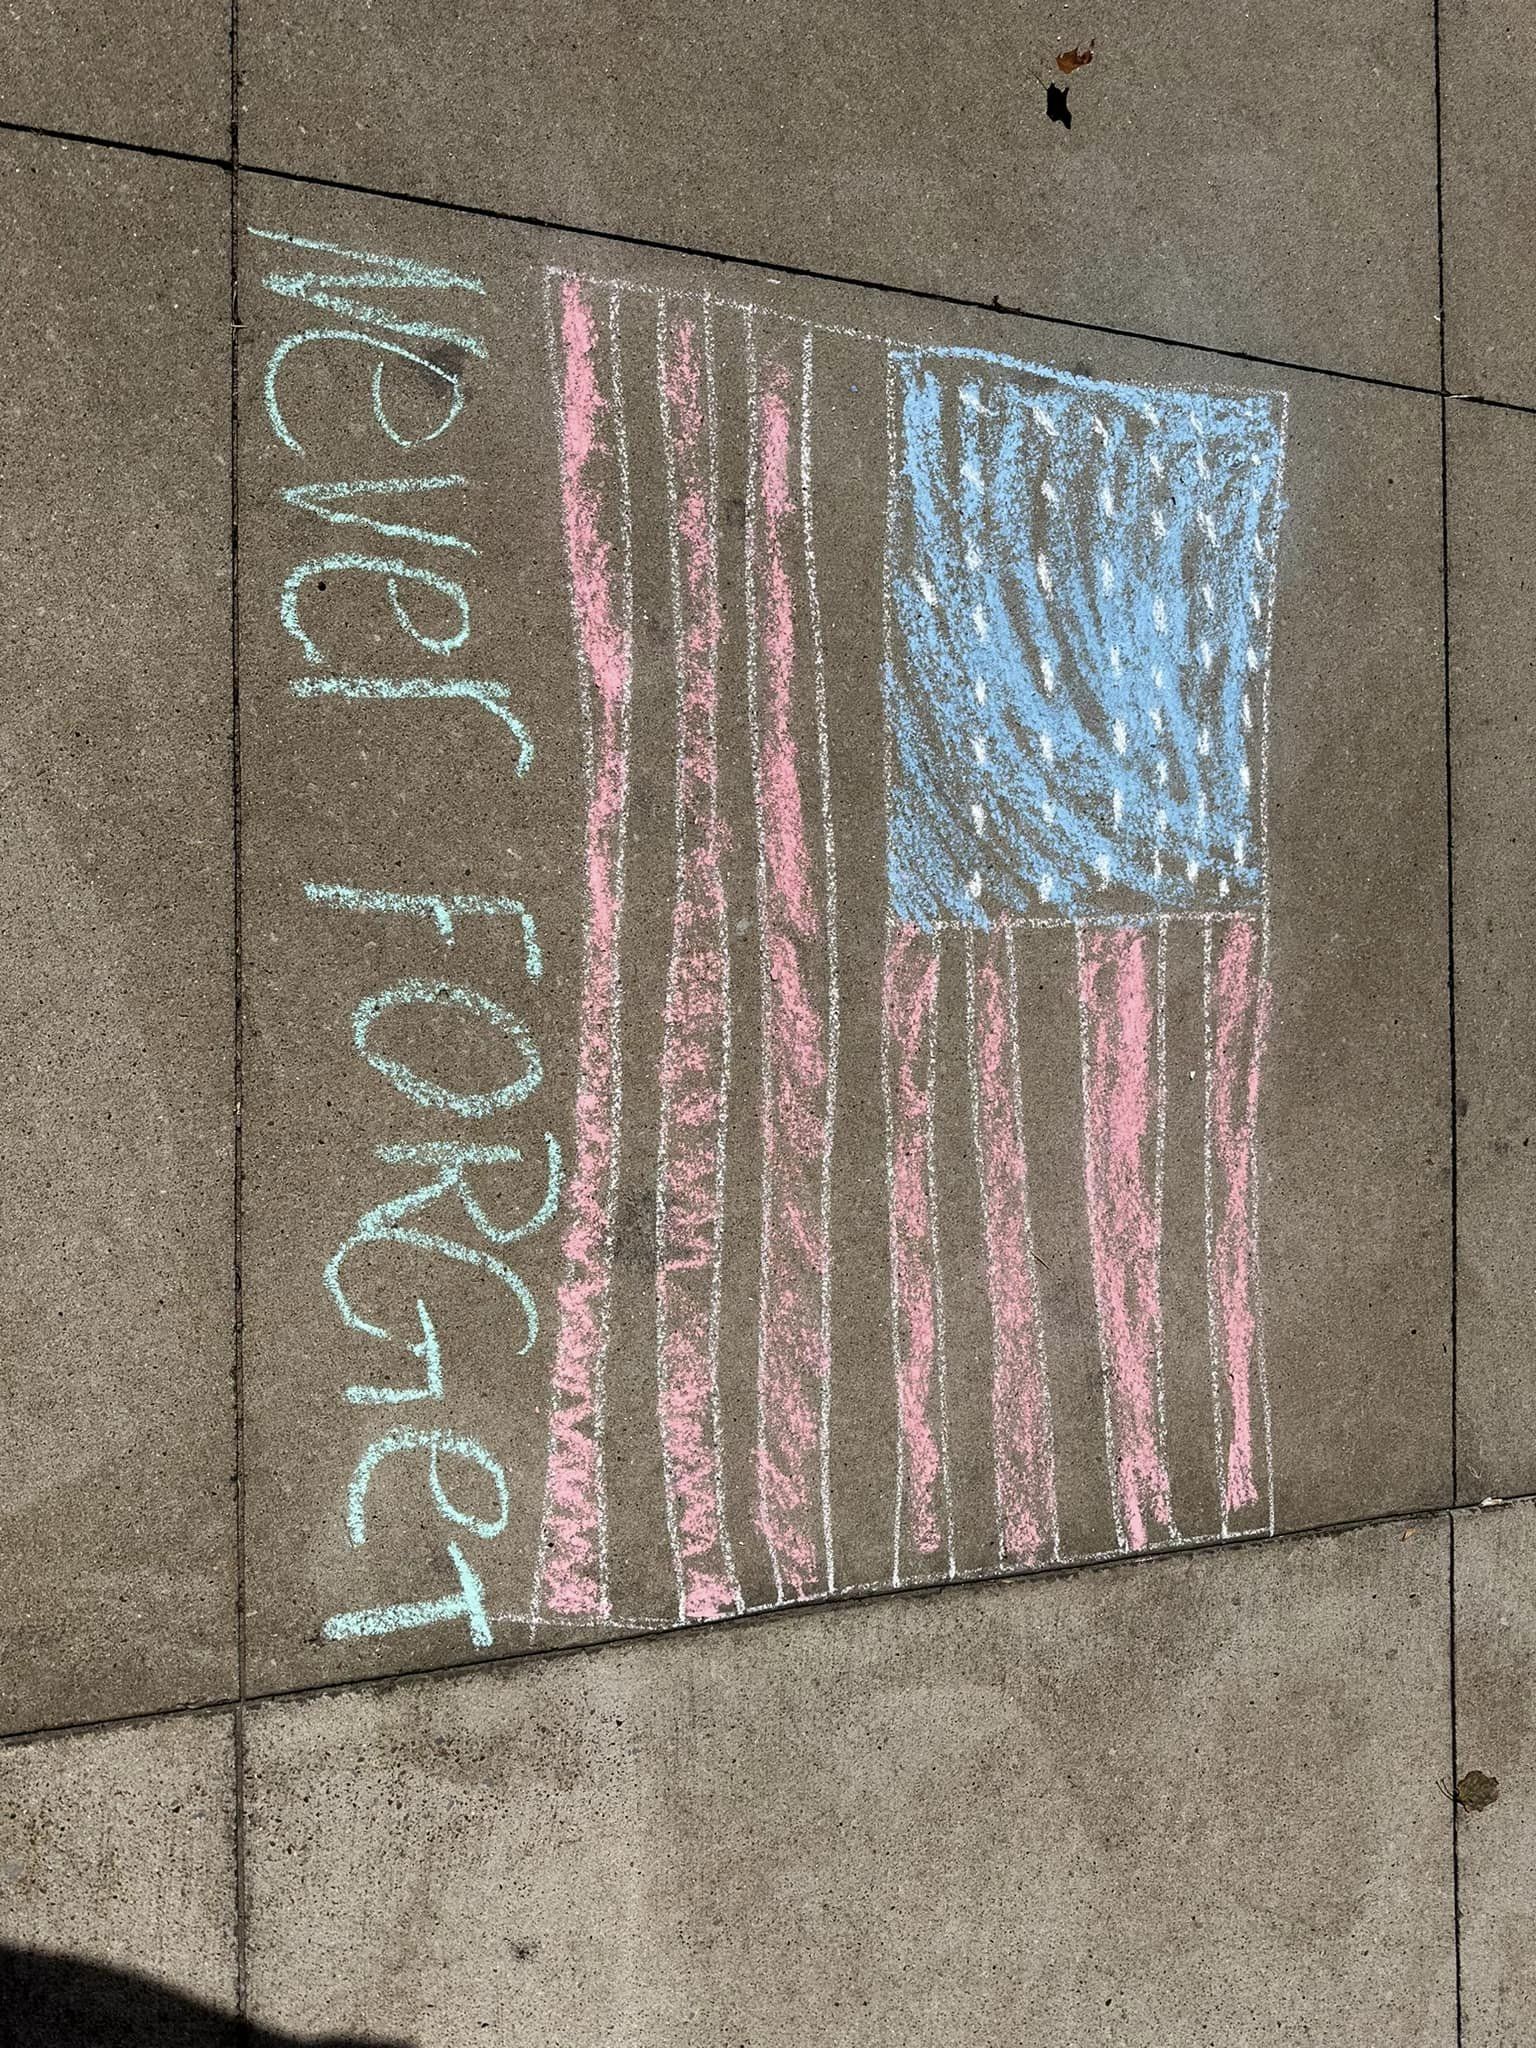 Never FORGeT